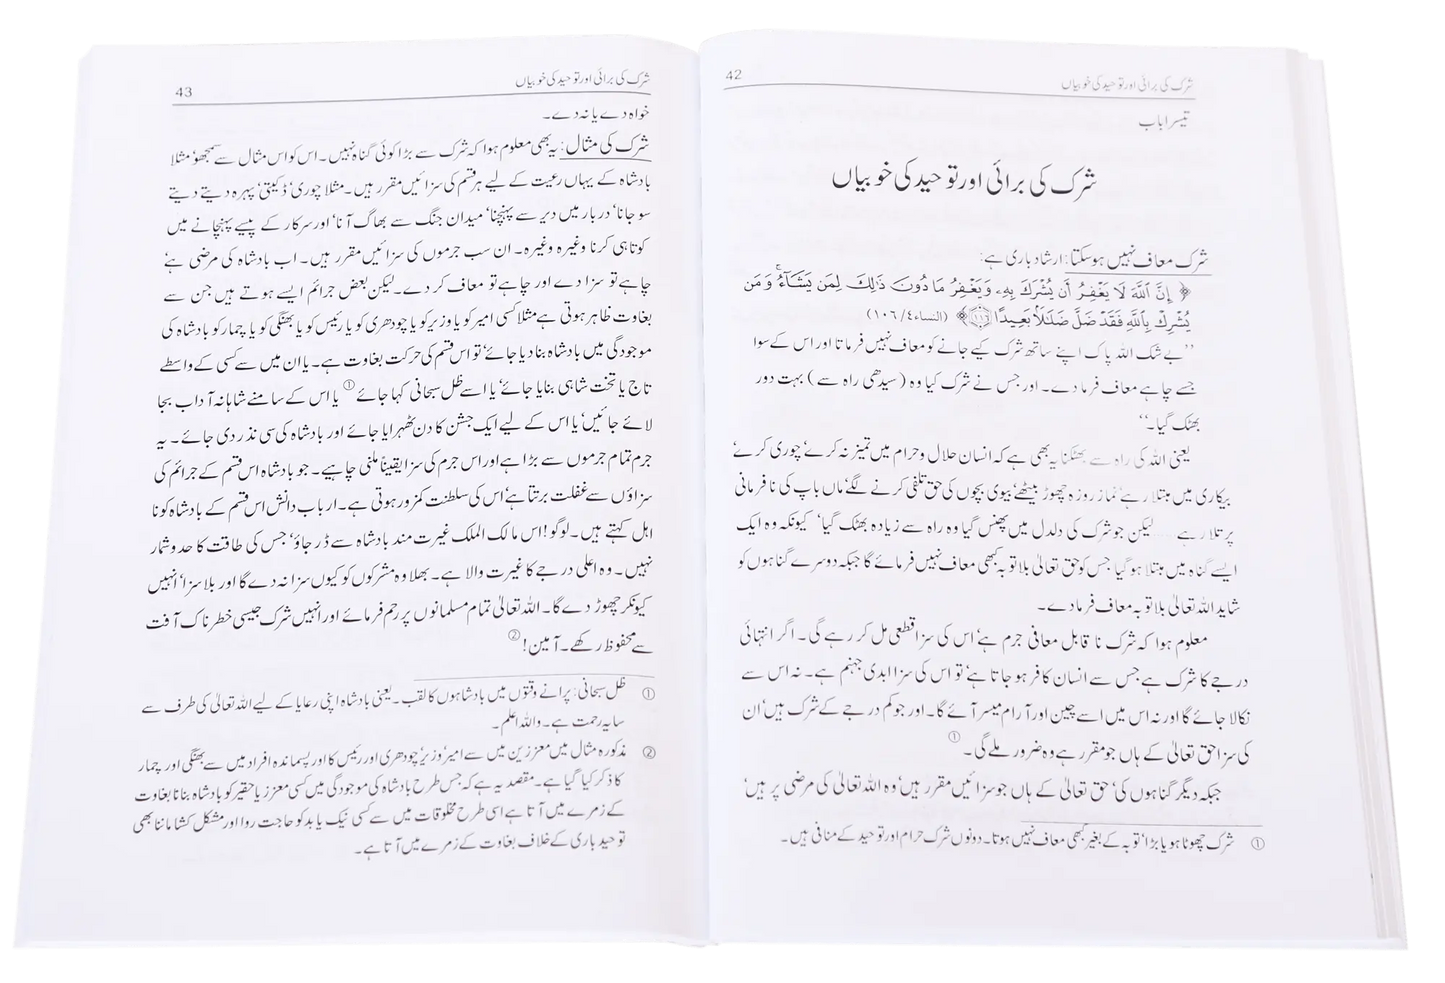 42
شرک کی برائی اور توحید کی خوبیاں
تیسرا باب
شرک کی برائی اور توحید کی خوبیاں
شرک معاف نہیں ہوسکتا: ارشاد باری ہے:
﴿ إِنَّ ٱللَّهَ لَا يَغْفِرُ أَن يُشْرَكَ بِهِۦ وَيَغْفِرُ مَا دُونَ ذَٰلِكَ لِمَن يَشَآءُ ۚ وَمَن
يُشْرِكْ بِٱللَّهِ فَقَدْ ضَلَّ ضَلَٰلًۢا بَعِيدًا ﴿١١٦﴾ ﴾ (النساء٤/١٠٦)
’’بے شک اللہ پاک اپنے ساتھ شرک کیے جانے کو معاف نہیں فرماتا اور اس کے سوا
جسے چاہے معاف فرما دے۔ اور جس نے شرک کیا وہ (سیدھی راہ سے) بہت دور
بھٹک گیا۔‘‘
یعنی اللہ کی راہ سے بھٹکنا یہ بھی ہے کہ انسان حلال و حرام میں تمیز نہ کرے‘ چوری کرے‘
بیکاری میں مبتلا رہے‘ نماز روزہ چھوڑ بیٹھے‘ بیوی بچوں کی حق تلفی کرنے لگے‘ ماں باپ کی نافرمانی
پر تلا رہے ..... لیکن جو شرک کی دلدل میں پھنس گیا وہ راہ سے زیادہ بھٹک گیا‘ کیونکہ وہ ایک
ایسے گناہ میں مبتلا ہو گیا جس کو حق تعالیٰ بلا توبہ کبھی معاف نہیں فرمائے گا جبکہ دوسرے گناہوں کو
شاید اللہ تعالیٰ بلا توبہ معاف فرما دے۔
معلوم ہوا کہ شرک نا قابل معافی جرم ہے‘ اس کی سزا قطعی مل کر رہے گی۔ اگر انتہائی
درجے کا شرک ہے جس سے انسان کافر ہو جاتا ہے‘ تو اس کی سزا ابدی جہنم ہے۔ نہ اس سے
نکالا جائے گا اور نہ اس میں اسے چین اور آرام میسر آئے گا۔ اور جو کم درجے کے شرک ہیں‘ ان
کی سزا حق تعالیٰ کے ہاں جو مقرر ہے وہ ضرور ملے گی۔ ①
جبکہ دیگر گناہوں کی‘ حق تعالیٰ کے ہاں جو سزائیں مقرر ہیں‘ وہ اللہ تعالیٰ کی مرضی پر ہیں‘
① شرک چھوٹا ہو یا بڑا‘ توبہ کے بغیر کبھی معاف نہیں ہوتا۔ دونوں شرک حرام اور توحید کے منافی ہیں۔
43
شرک کی برائی اور توحید کی خوبیاں
خواہ دے یا نہ دے۔
شرک کی مثال: یہ بھی معلوم ہوا کہ شرک سے بڑا کوئی گناہ نہیں۔ اس کو اس مثال سے سمجھو‘ مثلا
بادشاہ کے یہاں رعیت کے لیے ہر قسم کی سزائیں مقرر ہیں۔ مثلا چوری‘ ڈکیتی‘ پہرہ دیتے دیتے
سو جانا‘ دربار میں دیر سے پہنچنا‘ میدان جنگ سے بھاگ آنا‘ اور سرکار کے پیسے پہنچانے میں
کوتاہی کرنا وغیرہ وغیرہ۔ ان سب جرموں کی سزائیں مقرر ہیں۔ اب بادشاہ کی مرضی ہے‘
چاہے تو سزا دے اور چاہے تو معاف کر دے۔ لیکن بعض جرائم ایسے ہوتے ہیں جن سے
بغاوت ظاہر ہوتی ہے‘ مثلا کسی امیر کو یا وزیر کو یا چودھری کو یا رئیس کو یا بھنگی کو یا چمار کو بادشاہ کی
موجودگی میں بادشاہ بنا دیا جائے‘ تو اس قسم کی حرکت بغاوت ہے۔ یا ان میں سے کسی کے واسطے
تاج یا تخت شاہی بنایا جائے‘ یا اسے ظل سبحانی کہا جائے ① یا اس کے سامنے شاہانہ آداب بجا
لائے جائیں‘ یا اس کے لیے ایک جشن کا دن ٹھہرایا جائے اور بادشاہ کی سی نذر دی جائے۔ یہ
جرم تمام جرموں سے بڑا ہے اور اس جرم کی سزا یقیناً ملنی چاہیے۔ جو بادشاہ اس قسم کے جرائم کی
سزاؤں سے غفلت برتتا ہے‘ اس کی سلطنت کمزور ہوتی ہے۔ ارباب دانش اس قسم کے بادشاہ کو نا
اہل کہتے ہیں۔ لوگو! اس مالک الملک غیرت مند بادشاہ سے ڈر جاؤ‘ جس کی طاقت کا حد و شمار
نہیں۔ وہ اعلی درجے کا غیرت والا ہے۔ بھلا وہ مشرکوں کو کیوں سزا نہ دے گا اور بلا سزا‘ انہیں
کیونکر چھوڑ دے گا۔ اللہ تعالیٰ تمام مسلمانوں پر رحم فرمائے اور انہیں شرک جیسی خطرناک آفت
سے محفوظ رکھے۔ آمین! ②
① ظل سبحانی: پرانے وقتوں میں بادشاہوں کا لقب۔ یعنی بادشاہ اپنی رعایا کے لیے اللہ تعالیٰ کی طرف سے
سایہ رحمت ہے۔ واللہ اعلم۔
② مذکورہ مثال میں معززین میں سے امیر‘ وزیر‘ چودھری اور رئیس کا اور پسماندہ افراد میں سے بھنگی اور چمار
کا ذکر کیا گیا ہے۔ مقصد یہ ہے کہ جس طرح بادشاہ کی موجودگی میں کسی معزز یا حقیر کو بادشاہ بنانا بغاوت
کے زمرے میں آتا ہے اسی طرح مخلوقات میں سے کسی نیک یا بد کو حاجت روا اور مشکل کشا ماننا بھی
توحید باری کے خلاف بغاوت کے زمرے میں آتا ہے۔